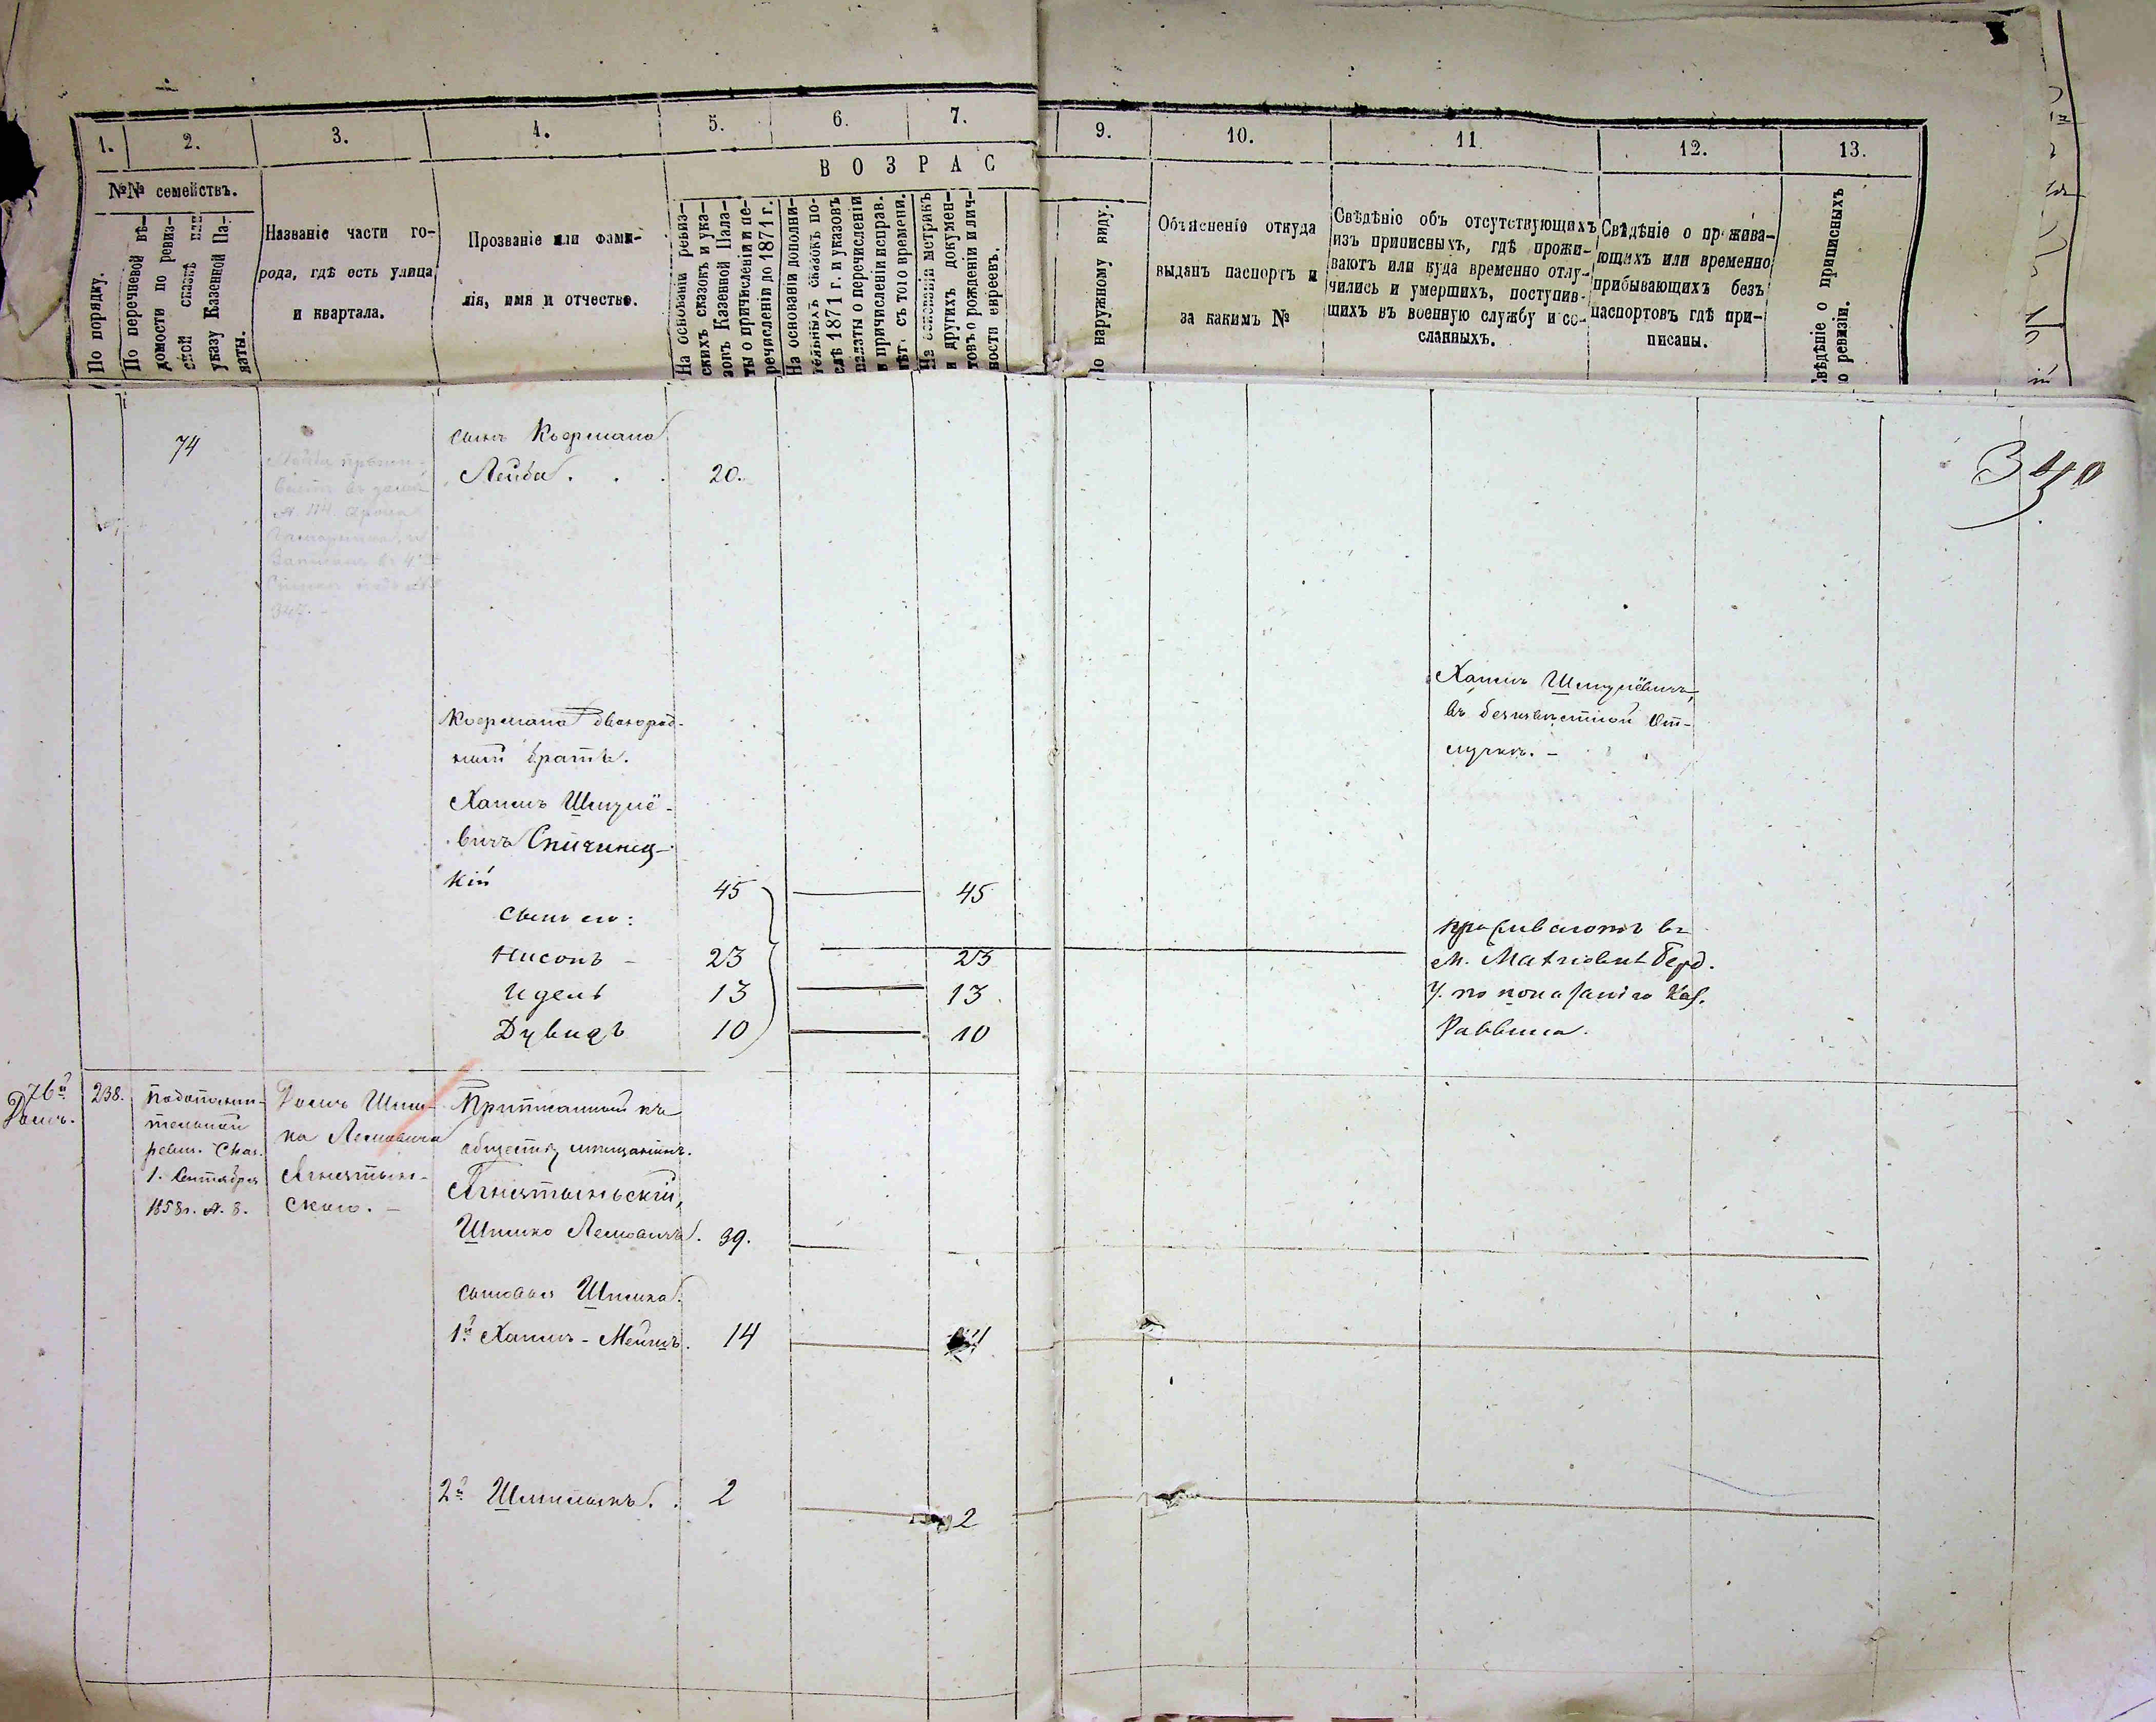 1.
2.
3.
4.
5.
6.
7.
9.
10.
11
12.
13.
В О З Р А С
№№ семействъ.
По порядку.
По перечневой вѣ-
домости по ревиз-
ской сказкѣ или
указу Казенной Па-
латы.
Названіе части го-
рода, гдѣ есть улица
и квартала.
Прозваніе или фами-
лія, имя и отчество.
На основаніи ревиз-
скихъ сказокъ и ука-
зовъ Казенной Пала-
ты о причисленіи и пе-
речисленіи до 1871 г.
На основаніи дополни-
тельныхъ сказокъ по-
слѣ 1871 г. и указовъ
палаты о перечисленіи
и причисленіи исправ.
лѣтъ съ того времени.
На основаніи метрикъ
и другихъ докумен-
товъ о рожденіи и лич-
ности евреевъ.
По наружному виду.
Объясненіе откуда
выданъ паспортъ и
за какимъ №
Свѣдѣніе объ отсутствующихъ
изъ приписныхъ, гдѣ прожи-
ваютъ или куда временно отлу-
чились и умершихъ, поступив-
шихъ въ военную службу и со-
сланныхъ.
Свѣдѣніе о прожива-
ющихъ или временно
прибывающихъ безъ
паспортовъ гдѣ при-
писаны.
Свѣдѣніе о приписныхъ
по ревизіи.
340
74
сынъ Коермана
Лейба . . . 20.
347.
Коермана двоюрод-
ный братъ.
Хаимъ Шмулё-
вичъ Спичинец-
кій 45 45
Сыны его:
Нисонъ - 23 23
Идель 13 13
Дувидъ 10 10
Хаимъ Шмулёвичъ,
въ безизвѣстной от-
лучкѣ. -
проживаютъ въ
М. Махновкѣ Берд.
У. по показанію Каз.
Раввина.
76й
Домъ.
238.
Дополни-
тельной
ревиз. Сказ.
1. Сентября
1858 г. №. 8.
Домъ Шим-
ка Лемовича
Агнятын-
скаго. -
Приписанный къ
обществу мѣщанинъ.
Агнятыньскій,
Шимко Лемовичъ. 39.
сыновья Шимка.
1й Хаимъ - Мейшъ. 14
2й Шлиомъ . . 2 2